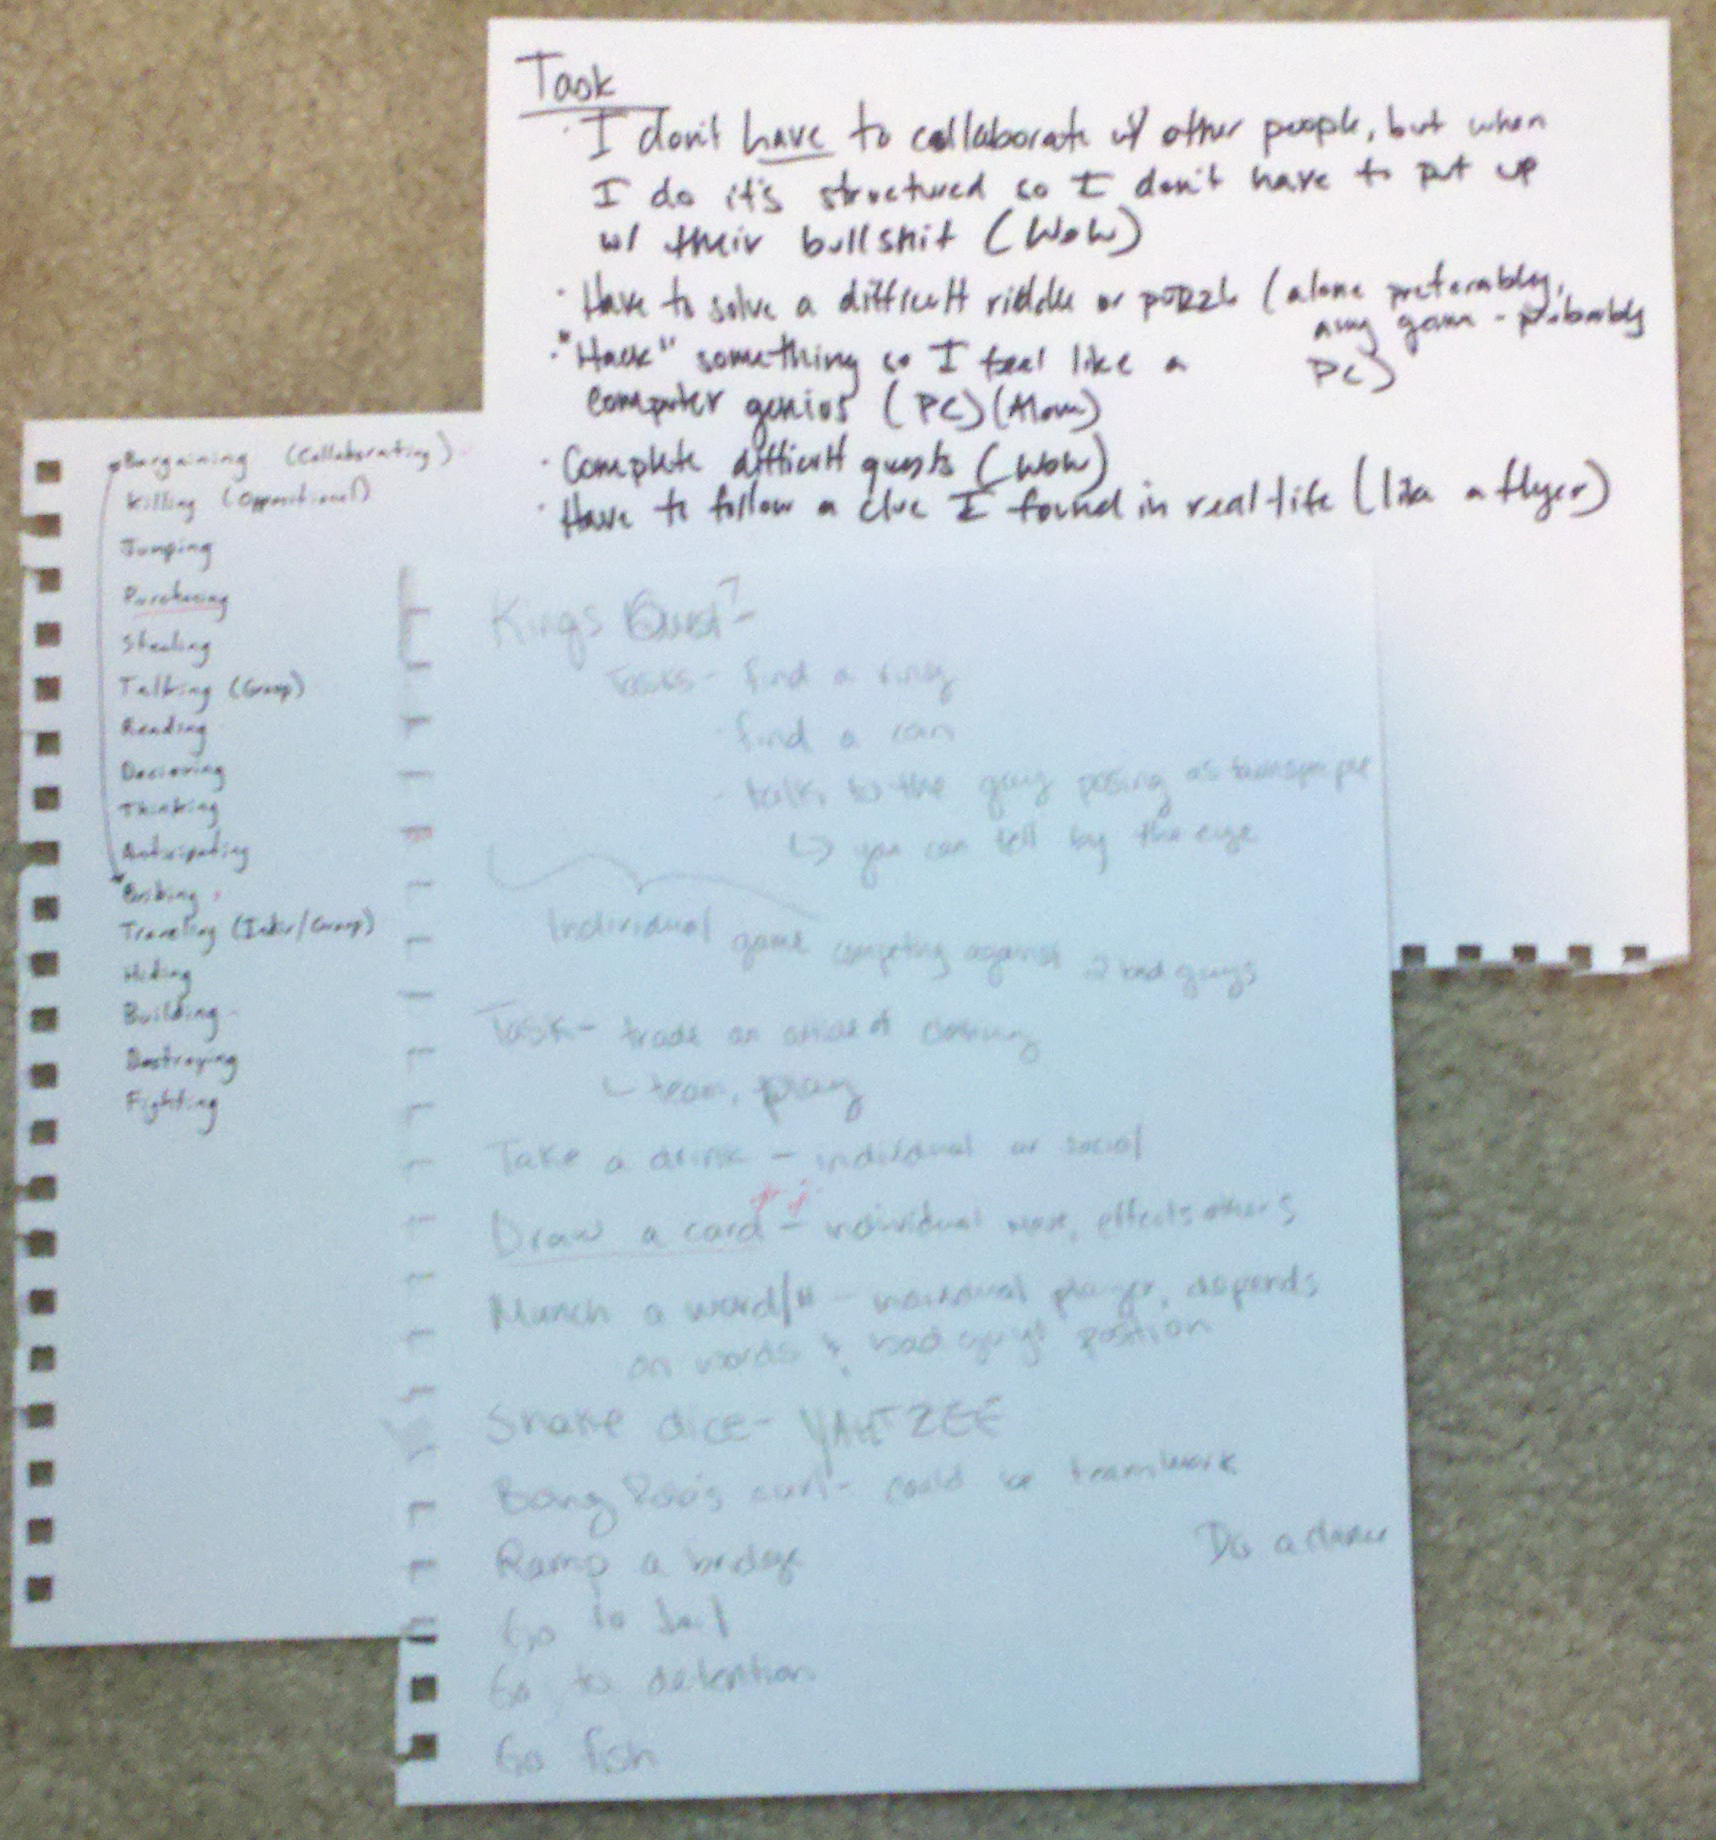 Task
· I don't have to collaborate w/ other people, but when
I do it's structured so I don't have to put up
w/ their bullshit (WoW)
· Have to solve a difficult riddle or puzzle (alone preferably,
any game - probably
PC)
· "Hack" something so I feel like a
computer genius (PC) (Alone)
· Complete difficult quests (WoW)
· Have to follow a clue I found in real life (like a flyer)
Bargaining (Collaborating)
Killing (Oppositional)
Jumping
Purchasing
Stealing
Talking (Group)
Reading
Thinking
Anticipating
Bribing
Traveling (Indiv/Group)
Hiding
Building
Destroying
Fighting
Kings Quest?-
Tasks - find a ring
· find a
- talk to the guy posing as
↳ you can tell by the eye
Individual game competing against 2 bad guys
Task - trade an article of clothing
↳ team, play
Take a drink - individual or social
Draw a card - individual move, effects others
Munch a word/# - individual player, depends
on words & bad guys' position
Shake dice - YAHTZEE
could be teamwork
Ramp a bridge
Do a dance
Go to Jail
Go to detention
Go fish